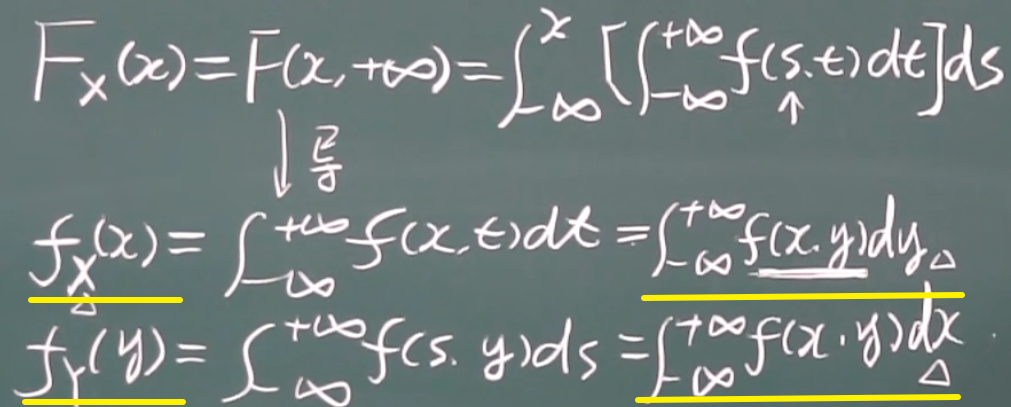 F_X(x)=F(x,+∞)=∫_{-∞}^{x}[∫_{-∞}^{+∞}f(s,t)dt]ds
↓导 ↑
f_X(x)=∫_{-∞}^{+∞}f(x,t)dt=∫_{-∞}^{+∞}f(x,y)dy
f_Y(y)=∫_{-∞}^{+∞}f(s,y)ds=∫_{-∞}^{+∞}f(x,y)dx